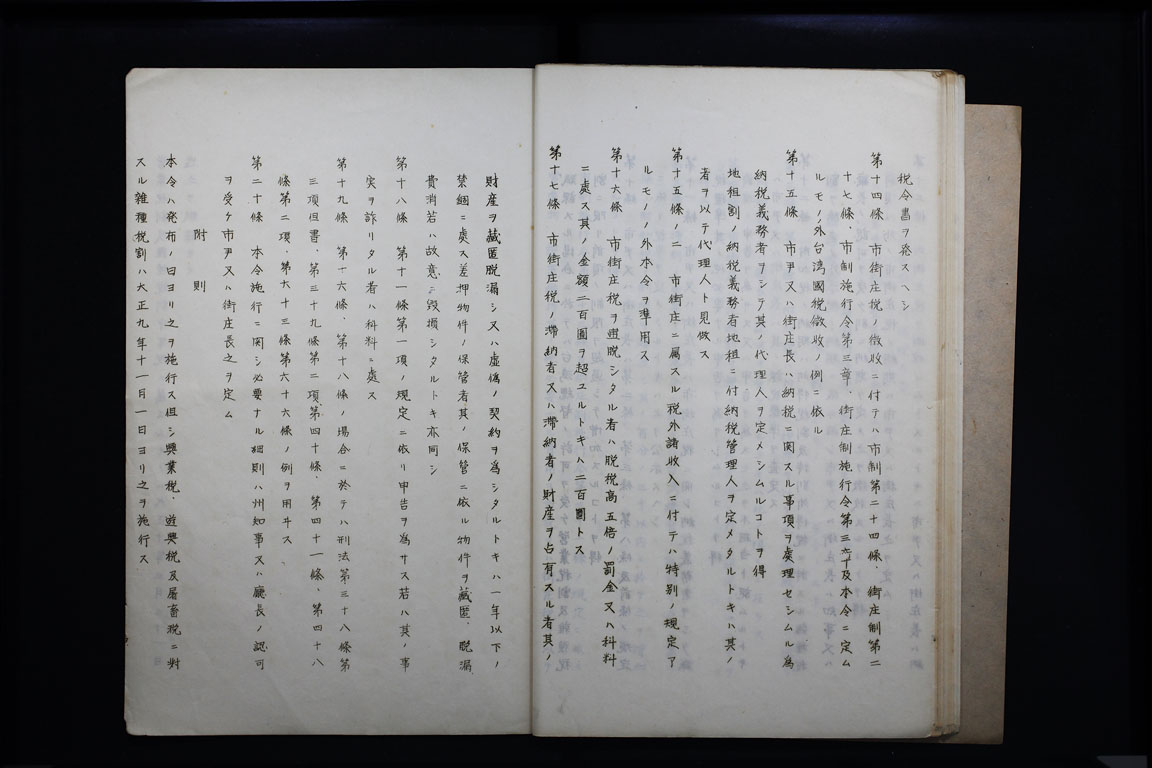 税令書ヲ発スヘシ
第十四條　市街庄税ノ徴收ニ付テハ市制第二十四條、街庄制第二
十七條、市制施行令第三章、街庄制施行令第三章及本令ニ定ム
ルモノノ外台湾國税徴收ノ例ニ依ル
第十五條　市尹又ハ街庄長ハ納税ニ関スル事項ヲ處理セシムル為
納税義務者ヲシテ其ノ代理人ヲ定メシムルコトヲ得
地租割ノ納税義務者地租ニ付納税管理人ヲ定メタルトキハ其ノ
者ヲ以テ代理人ト見做ス
第十五條ノニ　市街庄ニ属スル税外諸收入ニ付テハ特別ノ規定ア
ルモノノ外本令ヲ準用ス
第十六條　市街庄税ヲ逋脱シタル者ハ脱税高五倍ノ罰金又ハ科料
ニ處ス其ノ金額二百圓ヲ超ユルトキハ二百圓トス
第十七條　市街庄税ノ滞納者又ハ滞納者ノ財産ヲ占有スル者其ノ
財産ヲ藏匿脱漏シ又ハ虚偽ノ契約ヲ為シタルトキハ一年以下ノ
禁錮ニ處ス差押物件ノ保管者其ノ保管ニ依ル物件ヲ藏匿、脱漏
費消若ハ故意ニ毀損シタルトキ亦同シ
第十八條　第十一條第一項ノ規定ニ依リ申告ヲ為サス若ハ其ノ事
実ヲ詐リタル者ハ科料ニ處ス
第十九條　第十六條、第十八條ノ場合ニ於テハ刑法第三十八條第
三項但書、第三十九條第二項、第四十條、第四十一條、第四十八
條第二項、第六十三條第六十六條ノ例ヲ用ヰス
第二十條　本令施行ニ関シ必要ナル細則ハ州知事又ハ廳長ノ認可
ヲ受ケ市尹又ハ街庄長之ヲ定ム
附　則
本令ハ発布ノ日ヨリ之ヲ施行ス但シ興業税、遊興税及屠畜税ニ對
スル雜種税割ハ大正九年十一月一日ヨリ之ヲ施行ス